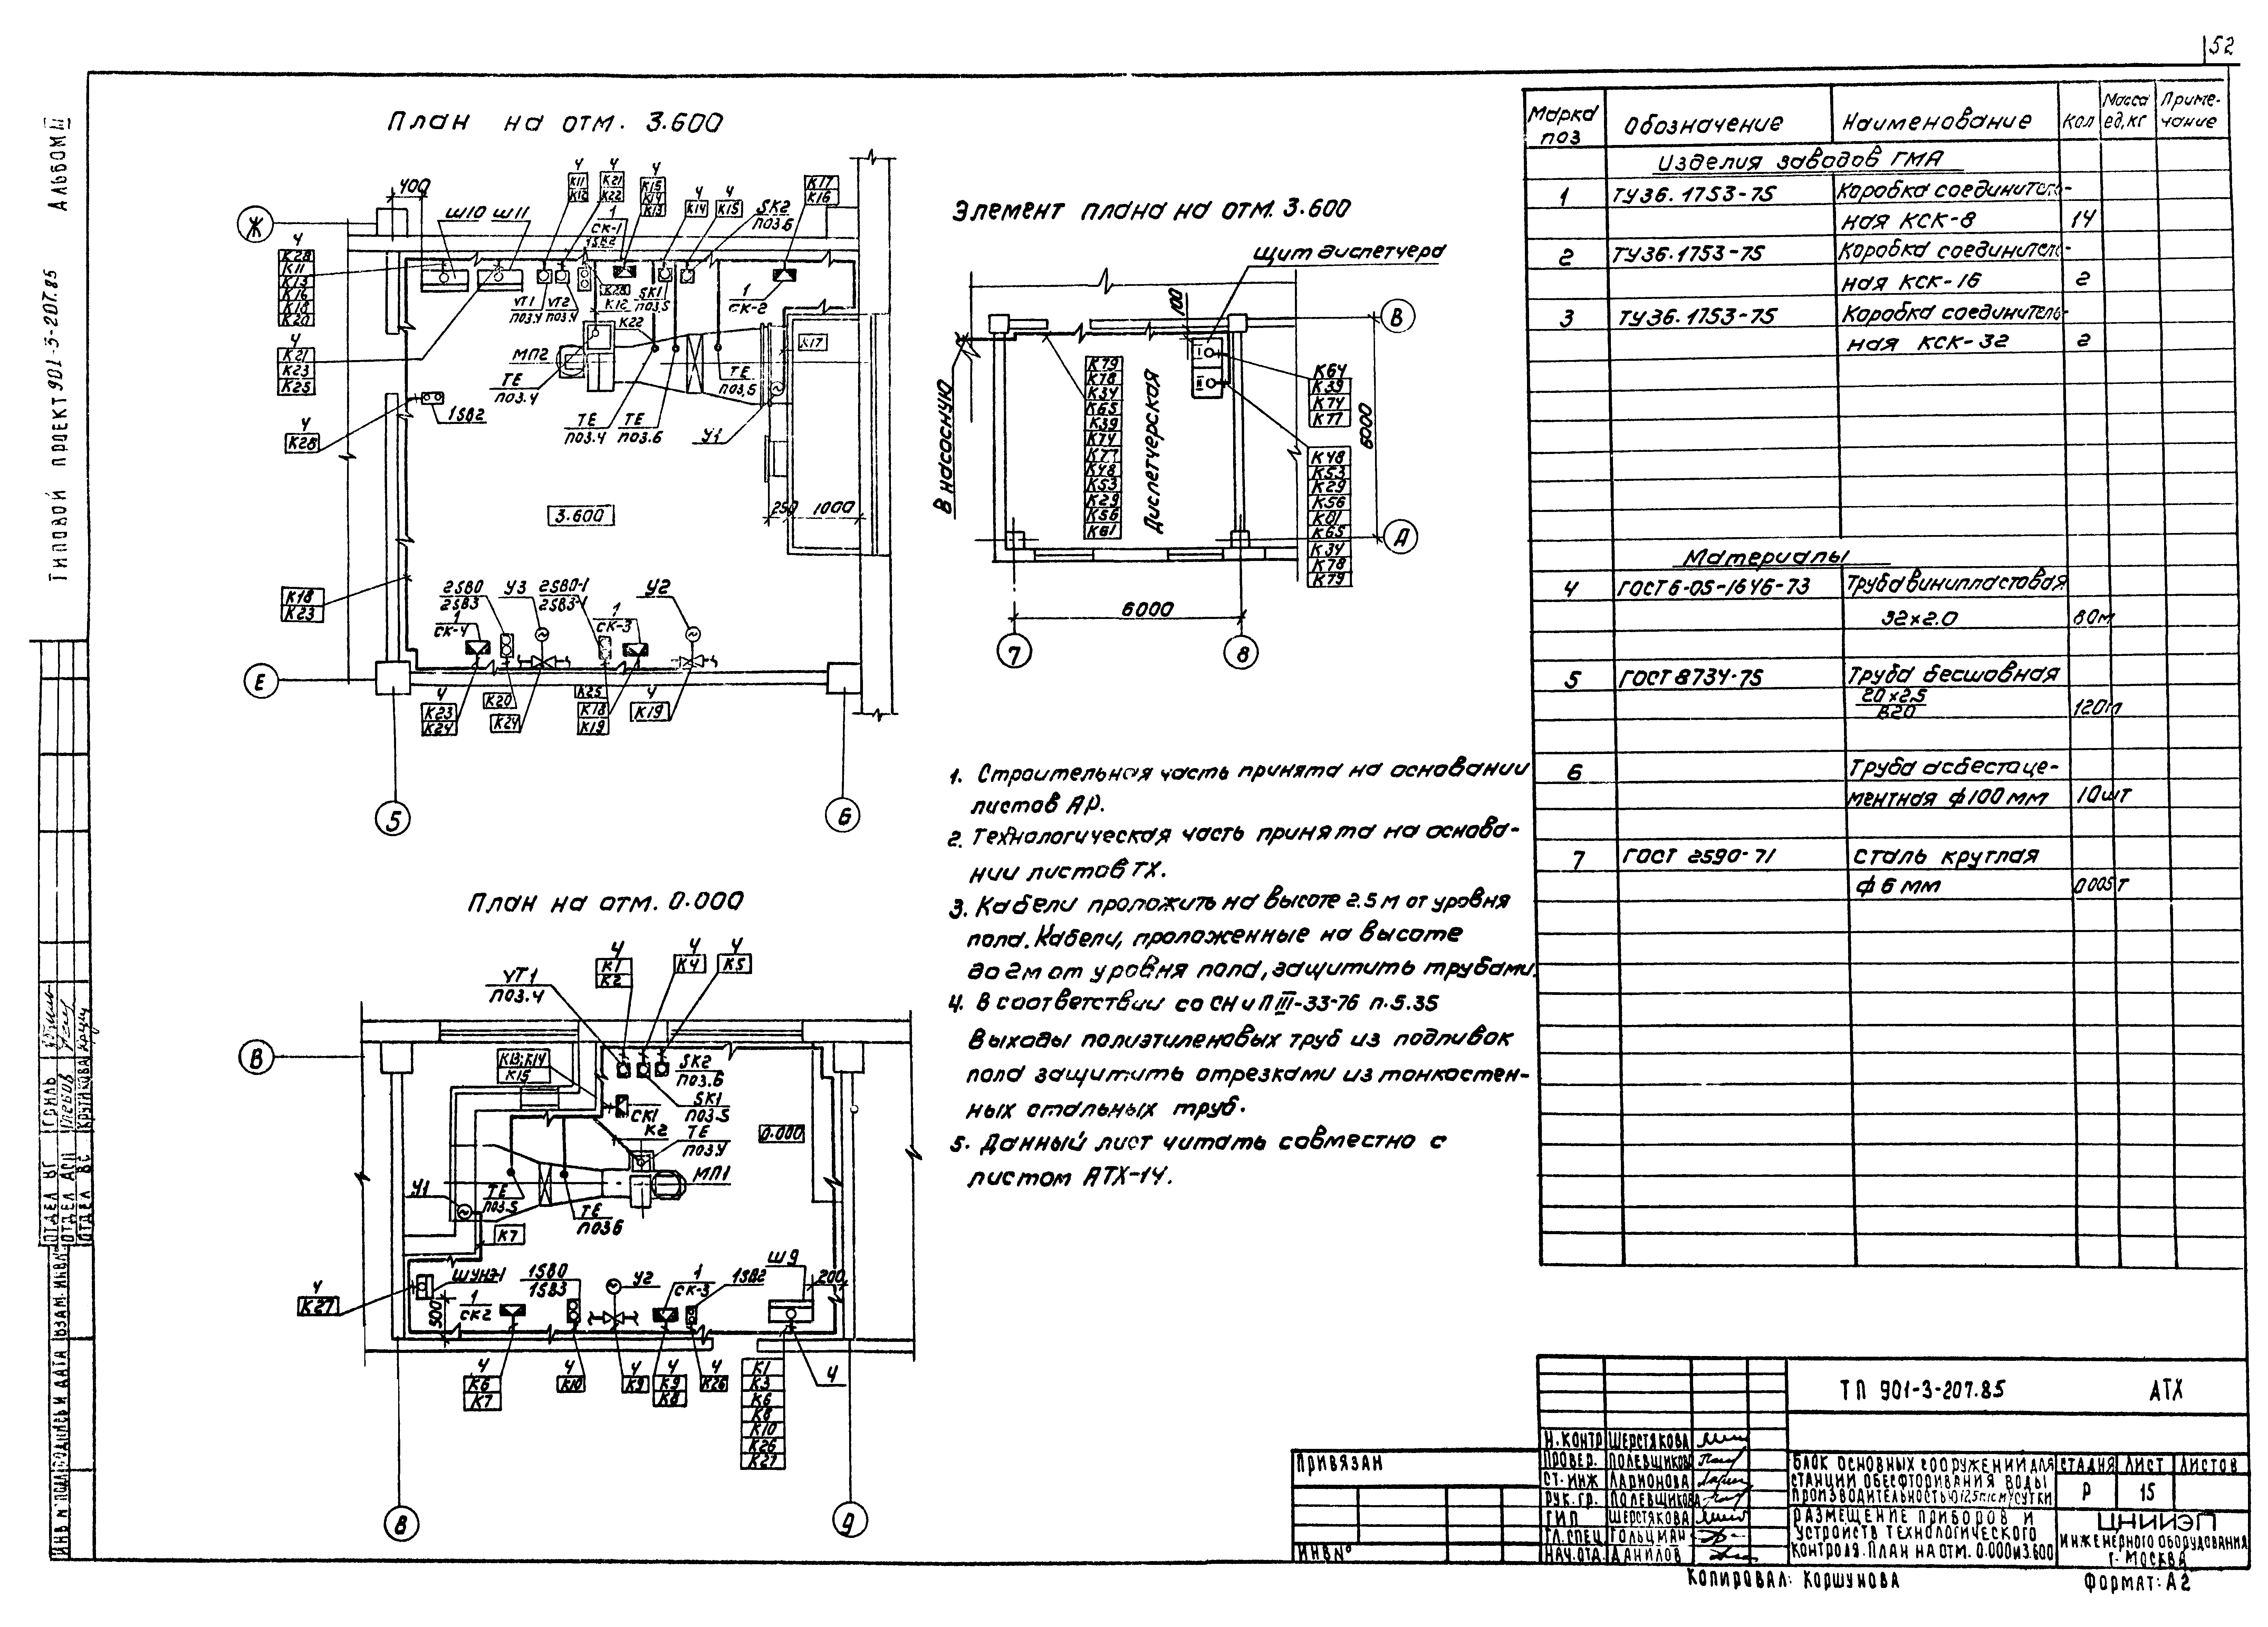 52
Альбом III
Типовой проект 901-3-207.85
План на отм. 3.600
400
Ш10 Ш11
Ж
4
К11
К12
4
К21
К22
1
СК-1
1SB2
4
К15
К14
К13
4
К14
4
К15
SK2
поз.6
К17
К16
4
К28
К11
К13
К16
К18
К20
4
К21
К23
К25
УТ1
поз.4
УТ2
поз.4
К28
К12
SK1
поз.5
1
СК-2
К22
К17
МП2
ТЕ
поз.4
ТЕ
поз.4
ТЕ
поз.6
ТЕ
поз.5
У1
1SB2
4
К28
3.600
250
1000
К18
К23
2SB0
2SB3
У3
2SB0-1
2SB3-1
1
СК-3
У2
1
СК-4
Е
4
К23
К24
К20
К24
К25
4
К18
К19
К19
5
6
Элемент плана на отм. 3.600
Щит диспетчера
100
В
В насосную
К79
К78
К34
К65
К39
К74
К77
К48
К53
К29
К56
К61
Диспетчерская
К64
К39
К74
К77
6000
К48
К53
К29
К56
К61
К65
К34
К78
К79
А
6000
7
8
План на отм. 0.000
4
К1
К2
4
К4
4
К5
УТ1
поз.4
В
К13;К14
К15
SK2
поз.6
SK1
поз.5
СК1
К2
ТЕ
поз.4
0.000
МП1
У1
ТЕ
поз.5
ТЕ
поз.6
К7
ШУНЭ-1
4
К27
500
1
СК2
1SB0
1SB3
У2
1
СК-3
1SB2
Ш9
200
4
К6
К7
4
К10
4
К9
4
К9
К8
4
К26
К1
К3
К6
К8
К10
К26
К27
4
8
9
1. Строительная часть принята на основании
листов АР.
2. Технологическая часть принята на основа-
нии листов ТХ.
3. Кабели проложить на высоте 2.5 м от уровня
пола. Кабели, проложенные на высоте
до 2м от уровня пола, защитить трубами.
4. В соответствии со СНиП III-33-76 п.5.35
Выходы полиэтиленовых труб из подливок
пола защитить отрезками из тонкостен-
ных стальных труб.
5. Данный лист читать совместно с
листом АТХ-14.
Марка поз Обозначение Наименование Кол Масса ед,кг Приме-чание
Изделия заводов ГМА
1 ТУ36.1753-75 Коробка соединитель-
ная КСК-8 14
2 ТУ36.1753-75 Коробка соединитель-
ная КСК-16 2
3 ТУ36.1753-75 Коробка соединитель-
ная КСК-32 2
Материалы
4 ГОСТ6-05-1646-73 Труба винипластовая
32х2.0 80м
5 ГОСТ 8734-75 Труба бесшовная
20х2.5
В20 120м
6 Труба асбестоце-
ментная ф100 мм 10шт
7 ГОСТ 2590-71 Сталь круглая
ф 6 мм 0.005т
ТП 901-3-207.85 АТХ
Н.контр Шерстякова
Провер. Полевщикова
Ст.инж Ларионова
Рук.гр. Полевщикова
ГИП Шерстякова
Гл.спец Гольцман
Нач.отд. Данилов
Блок основных сооружений для
станции обесфторивания воды
производительностью 12.5 тыс.м³/сутки
Стадия Лист Листов
Р 15
Размещение приборов и
устройств технологического
контроля. План на отм. 0.000 и 3.600
ЦНИИЭП
инженерного оборудования
г. Москва
Привязан
Инв №
Копировал: Коршунова
Формат: А2
Отдел ВГ
Отдел АСП
Отдел ВС Кругликова
Инв № подл. Подпись и дата Взам. инв №